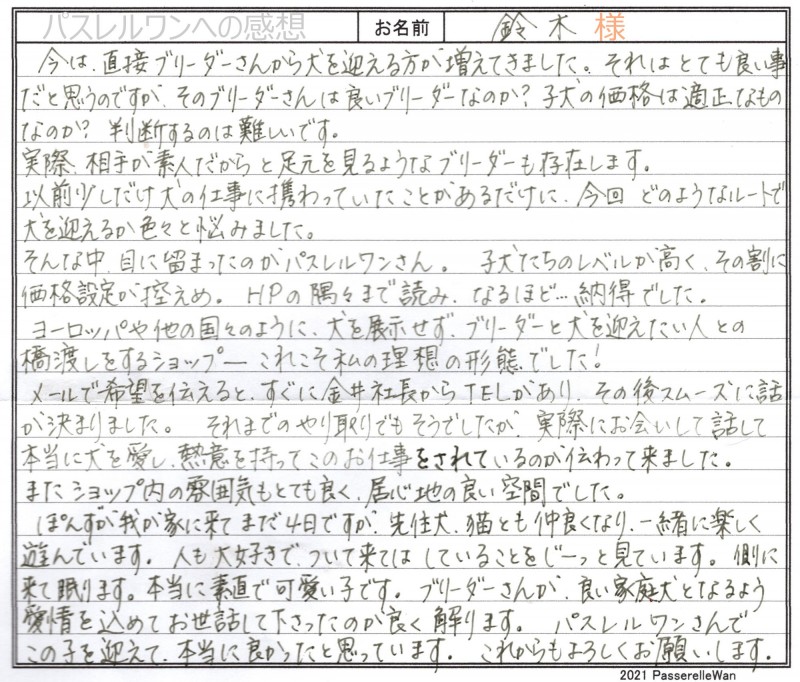 パスレルワンへの感想 お名前 鈴木 様
今は、直接ブリーダーさんから犬を迎える方が増えてきました。それはとても良い事
だと思うのですが、そのブリーダーさんは良いブリーダーなのか？子犬の価格は適正なもの
なのか？判断するのは難しいです。
実際、相手が素人だからと足元を見るようなブリーダーも存在します。
以前少しだけ犬の仕事に携わっていたことがあるだけに、今回どのようなルートで
犬を迎えるか色々と悩みました。
そんな中、目に留まったのがパスレルワンさん。子犬たちのレベルが高く、その割に
価格設定が控えめ。HPの隅々まで読み、なるほど…納得でした。
ヨーロッパや他の国々のように、犬を展示せず、ブリーダーと犬を迎えたい人との
橋渡しをするショップ―これこそ私の理想の形態でした！
メールで希望を伝えると、すぐに金井社長からTELがあり、その後スムーズに話
が決まりました。それまでのやり取りでもそうでしたが、実際にお会いして話して
本当に犬を愛し、熱意を持ってこのお仕事をされているのが伝わって来ました。
またショップ内の雰囲気もとても良く、居心地の良い空間でした。
ぽんずが我が家に来てまだ4日ですが、先住犬、猫とも仲良くなり、一緒に楽しく
遊んでいます。人も大好きで、ついて来てはしていることをじーっと見ています。側に
来て眠ります。本当に素直で可愛い子です。ブリーダーさんが、良い家庭犬となるよう
愛情を込めてお世話して下さったのが良く解ります。パスレルワンさんで
この子を迎えて、本当に良かったと思っています。これからもよろしくお願いします。
2021 PasserelleWan